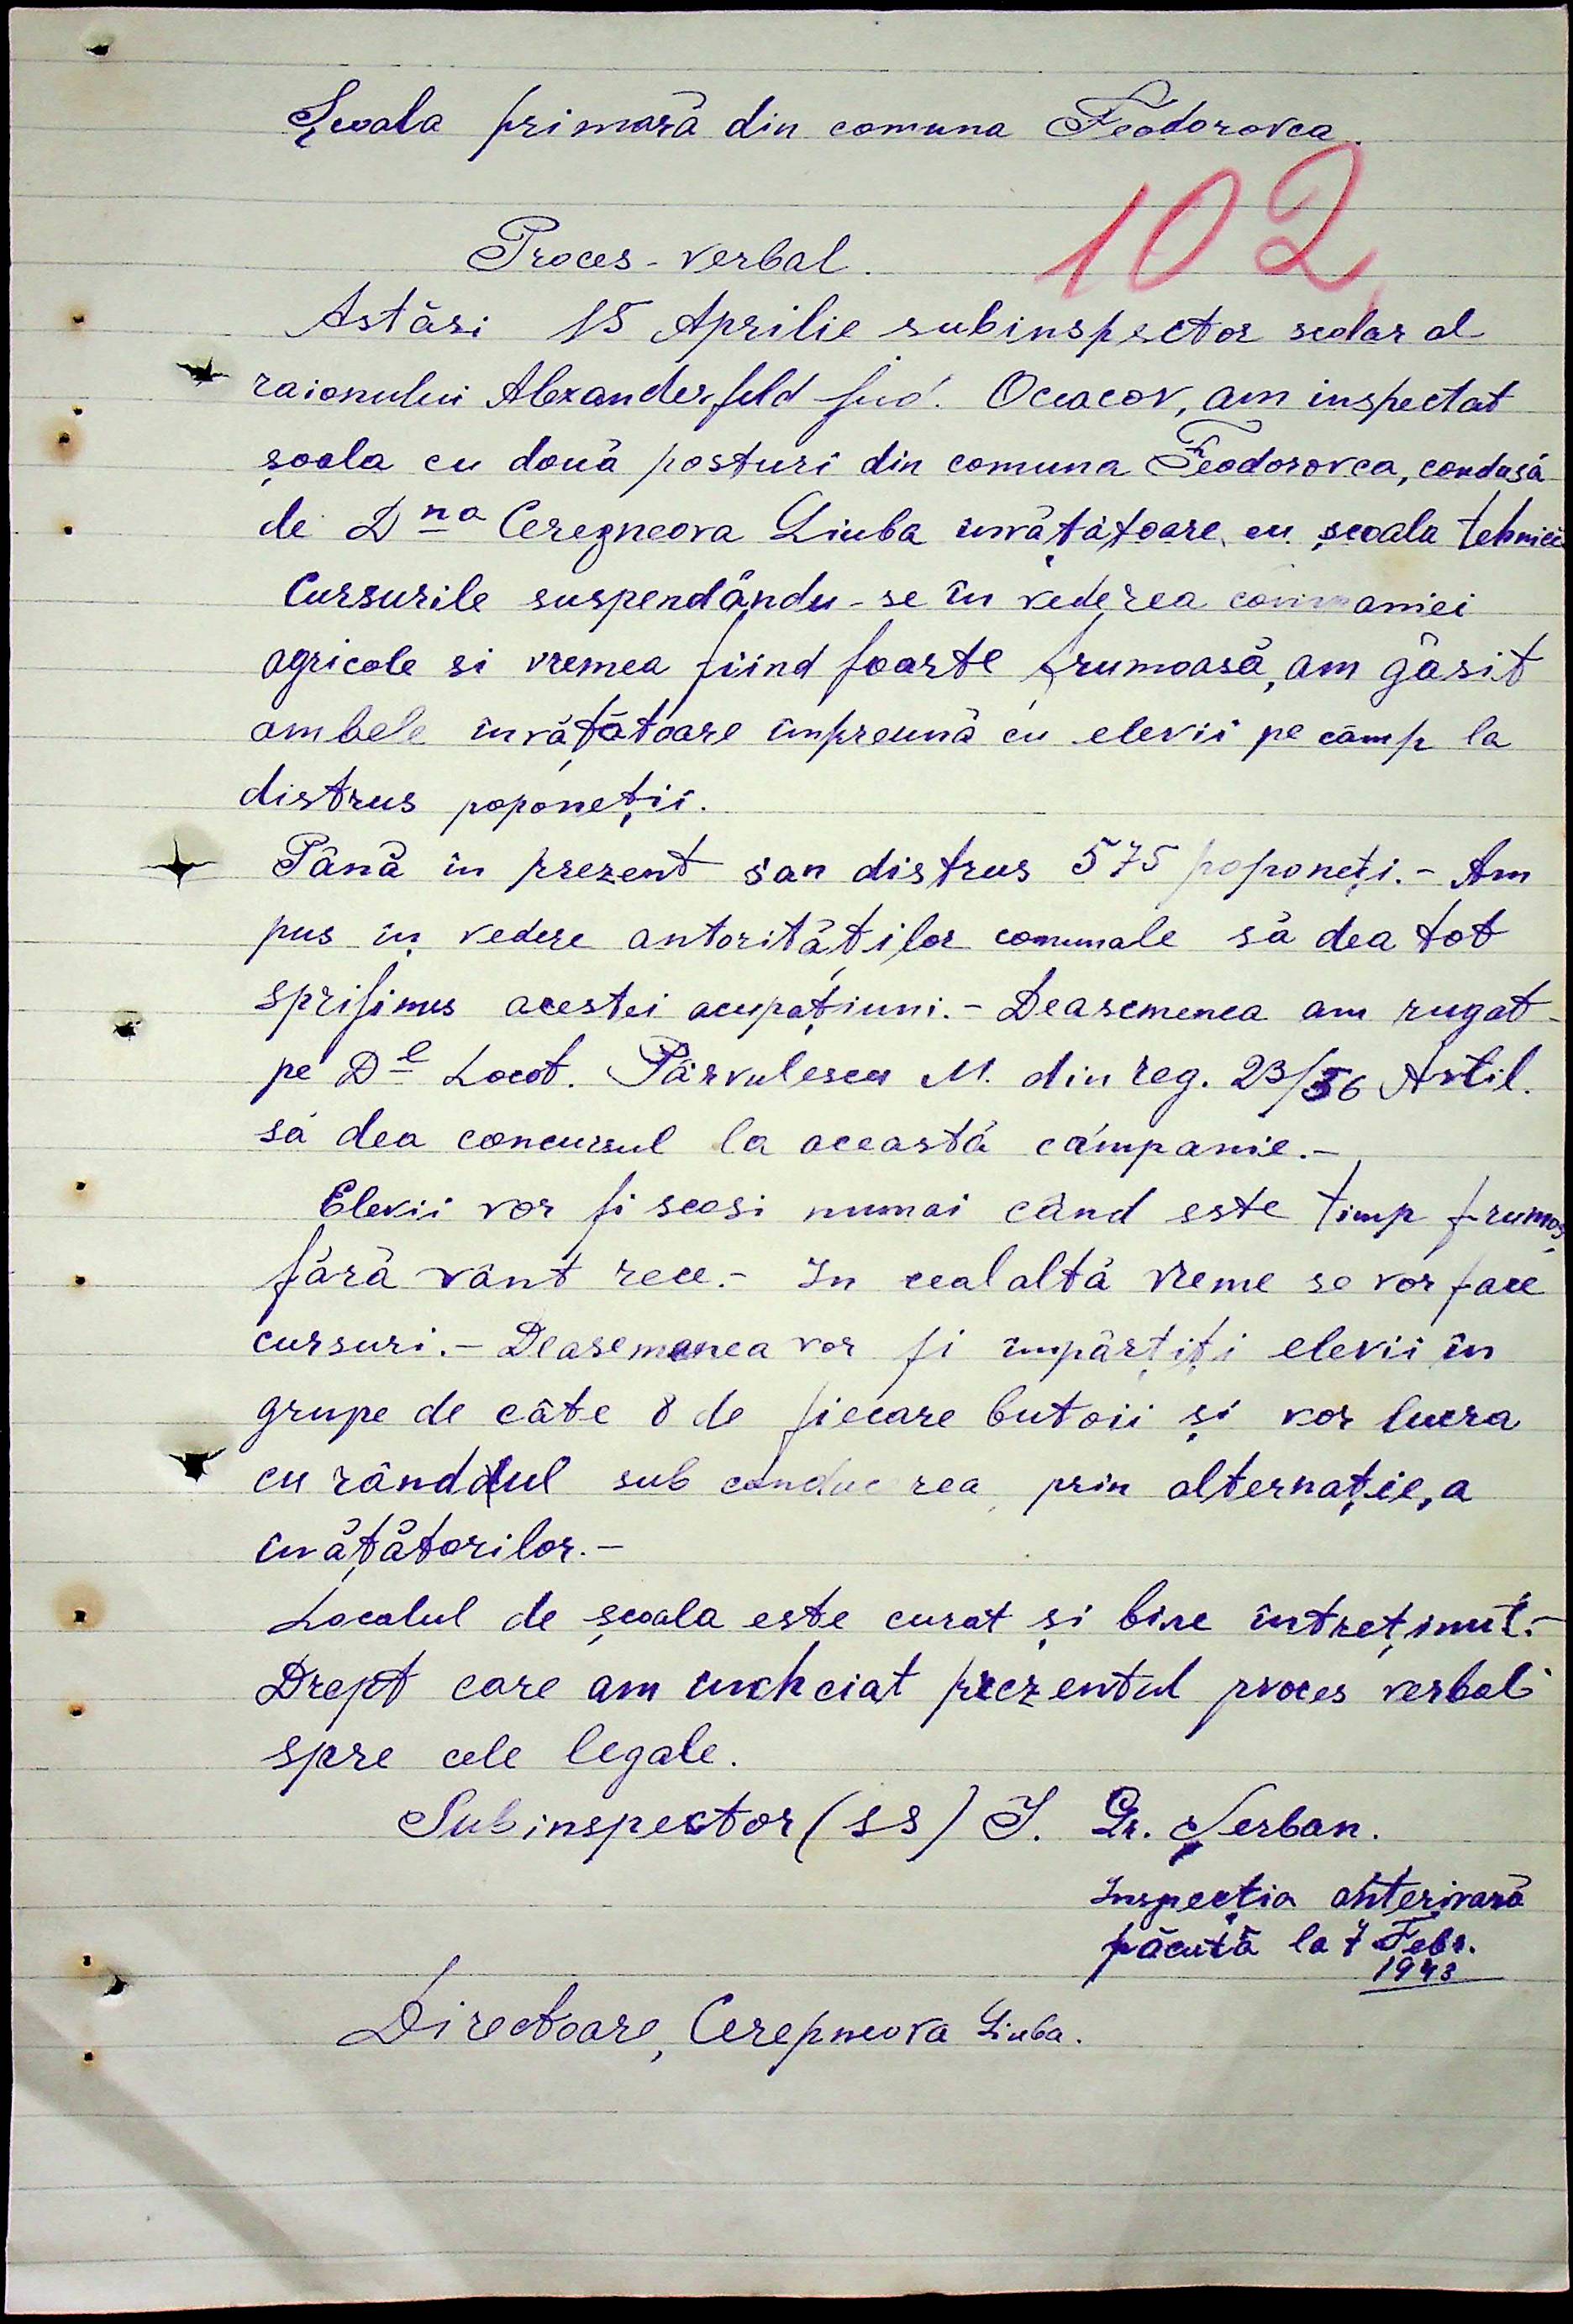 Școala primară din comuna Feodorovca.
102
Proces-verbal.
Astăsi 15 Aprilie subinspector scolar al
raionului Alexanderfeld jud. Oceacov, am inspectat
șoala cu două posturi din comuna Feodorovca, condusă
de Dna Ceregneova Liuba învățătoare cu școala tehnică
Cursurile suspendându-se în vederea companiei
agricole si vremea fiind foarte frumoasă, am găsit
ambele învățătoare împreună cu elevii pe câmp la
distrus poponeții.
Până în prezent sau distrus 575 poponeți.- Am
pus în vedere autorităților comunale să dea tot
sprijinus acestei acupațiuni.- Deasemenea am rugat
pe Dl Locot. Pârvulescu M. din reg. 23/56 Artil.
să dea concursul la această câmpanie.-
Elevii vor fi scosi numai când este timp frumos,
fără vânt rece.- In cealaltă vreme se vor face
cursuri.- Deasemenea vor fi împărțiți elevii în
grupe de câte 8 de fiecare butoii și vor lucra
cu rânddul sub conducerea, prin alternație, a
învățătorilor.-
Localul de școala este curat și bine întreținut.-
Drept care am încheiat prezentul proces verbal
spre cele legale.
Subinspector (ss) I. Gr. Șerban.
Inspecția anterioară
făcută la 7 Febr.
1943
Directoare, Cerepneova Liuba.